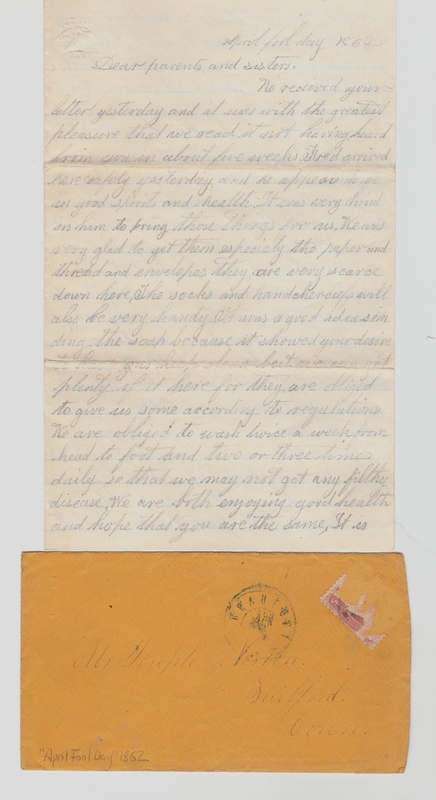 April fool day 186
Dear parents and sisters.
We received your
letter yesterday and it was with the greatest
pleasure that we read it not having heard
from you in about five weeks. Fred arrived
here safely yesterday and he appears to be
in good spirits and health, It was very kind
in him to bring those things for us, We was
very glad to get them especialy the paper and
thread and envelopes they are very scarce
down here, The socks and handcherciefs will
also be very handy, It was a good idea sen
ding the soap because it showed your desire
to have us but we can get
plenty of it here for they are obliged
to give us some acording to regulations
We are obliged to wash twice a week from
head to foot and two or three times
daily so that we may not get any filthy
disease, We are both enjoying good health
and hope that you are the same, It is
Mr Norton.
Guilford.
Conn.
"April Fool Day" 1862